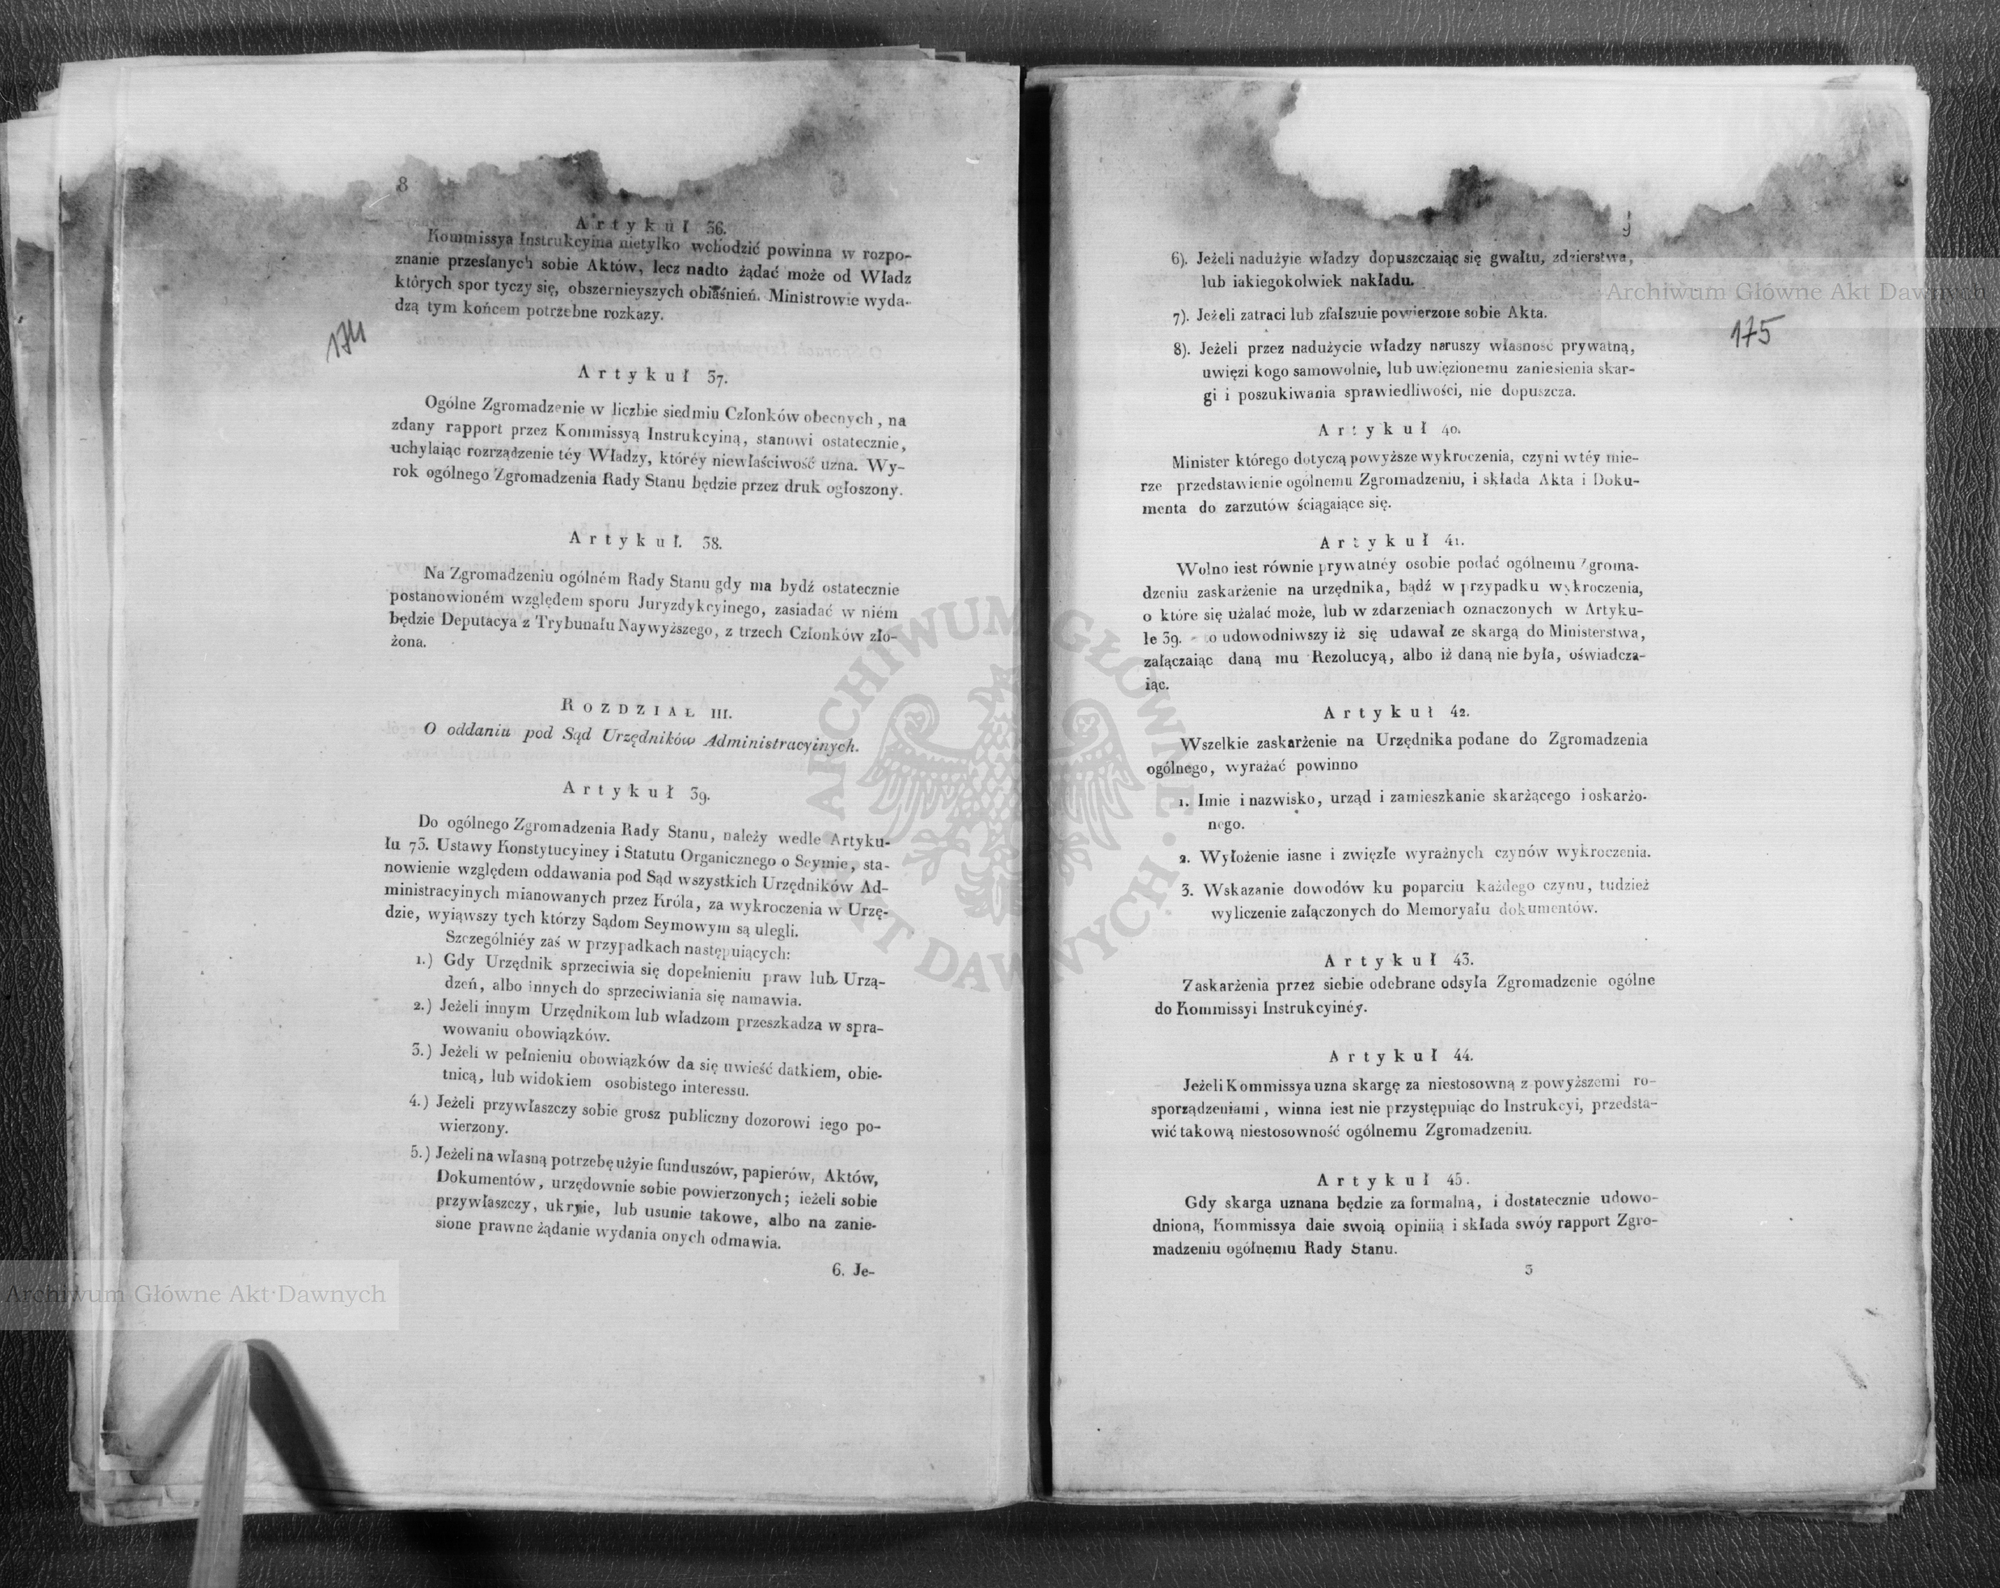 8
Artykuł 36.
Kommissya Instrukcyina nietylko wchodzić powinna w rozpo-
znanie przesłanych sobie Aktów, lecz nadto żądać może od Władz
których spor tyczy się, obszernieyszych obiaśnień. Ministrowie wyda-
dzą tym końcem potrzebne rozkazy.
174
Artykuł 37.
Ogólne Zgromadzenie w liczbie siedmiu Członków obecnych, na
zdany rapport przez Kommissyą Instrukcyiną, stanowi ostatecznie,
uchylaiąc rozrządzenie téy Władzy, któréy niewłaściwość uzna. Wy-
rok ogólnego Zgromadzenia Rady Stanu będzie przez druk ogłoszony.
Artykuł. 38.
Na Zgromadzeniu ogólném Rady Stanu gdy ma bydź ostatecznie
postanowioném względem sporu Juryzdykcyinego, zasiadać w niém
będzie Deputacya z Trybunału Naywyższego, z trzech Członków zło-
żona.
ROZDZIAŁ III.
O oddaniu pod Sąd Urzędników Administracyinych.
Artykuł 39.
Do ogólnego Zgromadzenia Rady Stanu, należy wedle Artyku-
łu 73. Ustawy Konstytucyiney i Statutu Organicznego o Seymie, sta-
nowienie względem oddawania pod Sąd wszystkich Urzędników Ad-
ministracyinych mianowanych przez Króla, za wykroczenia w Urzę-
dzie, wyiąwszy tych którzy Sądom Seymowym są ulegli.
Szczególniéy zaś w przypadkach następuiących:
1.) Gdy Urzędnik sprzeciwia się dopełnieniu praw lub Urzą-
dzeń, albo innych do sprzeciwiania się namawia.
2.) Jeżeli innym Urzędnikom lub władzom przeszkadza w spra-
wowaniu obowiązków.
3.) Jeżeli w pełnieniu obowiązków da się uwieść datkiem, obie-
tnicą, lub widokiem osobistego interessu.
4.) Jeżeli przywłaszczy sobie grosz publiczny dozorowi iego po-
wierzony.
5.) Jeżeli na własną potrzebę użyie funduszów, papierów, Aktów,
Dokumentów, urzędownie sobie powierzonych; ieżeli sobie
przywłaszczy, ukryie, lub usunie takowe, albo na zanie-
sione prawne żądanie wydania onych odmawia.
6. Je-
9
6). Jeżeli nadużyie władzy dopuszczaiąc się gwałtu, zdzierstwa,
lub iakiegokolwiek nakładu.
7). Jeżeli zatraci lub zfałszuie powierzone sobie Akta.
175
8). Jeżeli przez nadużycie władzy naruszy własność prywatną,
uwięzi kogo samowolnie, lub uwięzionemu zaniesienia skar-
gi i poszukiwania sprawiedliwości, nie dopuszcza.
Artykuł 40.
Minister którego dotyczą powyższe wykroczenia, czyni w téy mie-
rze przedstawienie ogólnemu Zgromadzeniu, i składa Akta i Doku-
menta do zarzutów ściągaiące się.
Artykuł 41.
Wolno iest równie prywatnéy osobie podać ogólnemu Zgroma-
dzeniu zaskarżenie na urzędnika, bądź w przypadku wykroczenia,
o które się użalać może, lub w zdarzeniach oznaczonych w Artyku-
le 39. to udowodniwszy iż się udawał ze skargą do Ministerstwa,
załączaiąc daną mu Rezolucyą, albo iż daną nie była, oświadcza-
iąc.
Artykuł 42.
Wszelkie zaskarżenie na Urzędnika podane do Zgromadzenia
ogólnego, wyrażać powinno
1. Imie i nazwisko, urząd i zamieszkanie skarżącego i oskarżo-
nego.
2. Wyłożenie iasne i zwięzłe wyraźnych czynów wykroczenia.
3. Wskazanie dowodów ku poparciu każdego czynu, tudzież
wyliczenie załączonych do Memoryału dokumentów.
Artykuł 43.
Zaskarżenia przez siebie odebrane odsyła Zgromadzenie ogólne
do Kommissyi Instrukcyinéy.
Artykuł 44.
Jeżeli Kommissya uzna skargę za niestosowną z powyższemi ro-
sporządzeniami, winna iest nie przystępuiąc do Instrukcyi, przedsta-
wić takową niestosowność ogólnemu Zgromadzeniu.
Artykuł 45.
Gdy skarga uznana będzie za formalną, i dostatecznie udowo-
dnioną, Kommissya daie swoią opiniią i składa swóy rapport Zgro-
madzeniu ogólnemu Rady Stanu.
3
Archiwum Główne Akt Dawnych
Archiwum Główne Akt Dawnych
ARCHIWUM GŁÓWNE AKT DAWNYCH